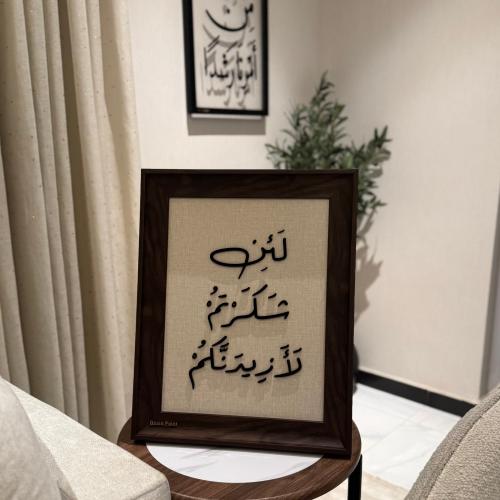 مِنْ
أَمْرِنَا رَشَدًا
لَئِن
شَكَرْتُمْ
لَأَزِيدَنَّكُمْ